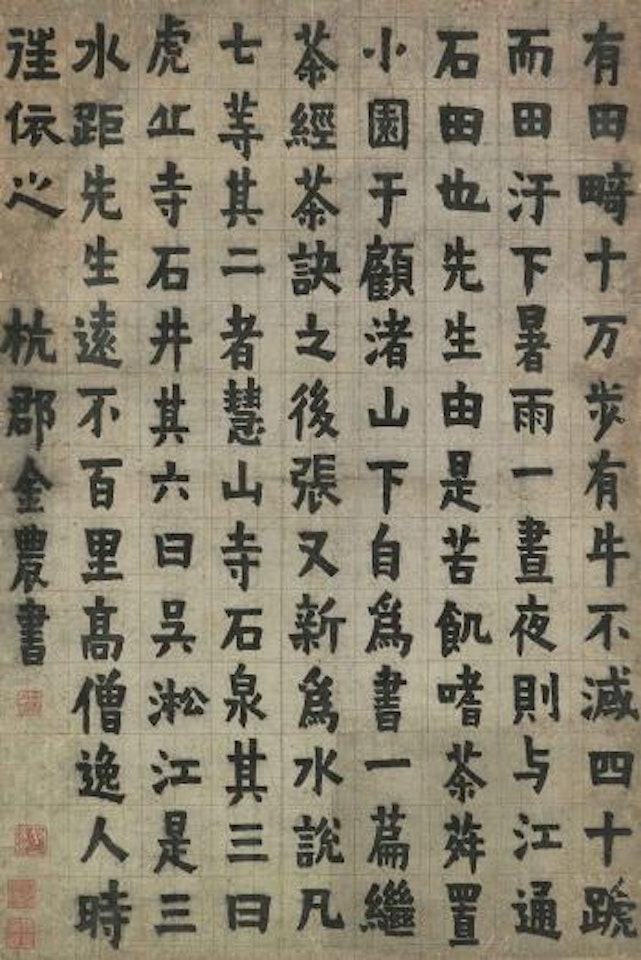 有田畸十万步有牛不減四十蹏
而田汙下暑雨一晝夜則与江通
石田也先生由是苦飢嗜茶荈置
小園于顧渚山下自爲書一篇繼
茶經茶訣之後張又新爲水說凡
七等其二者慧山寺石泉其三曰
虎丘寺石井其六曰吳淞江是三
水距先生遠不百里高僧逸人時
往依之 杭郡金農書